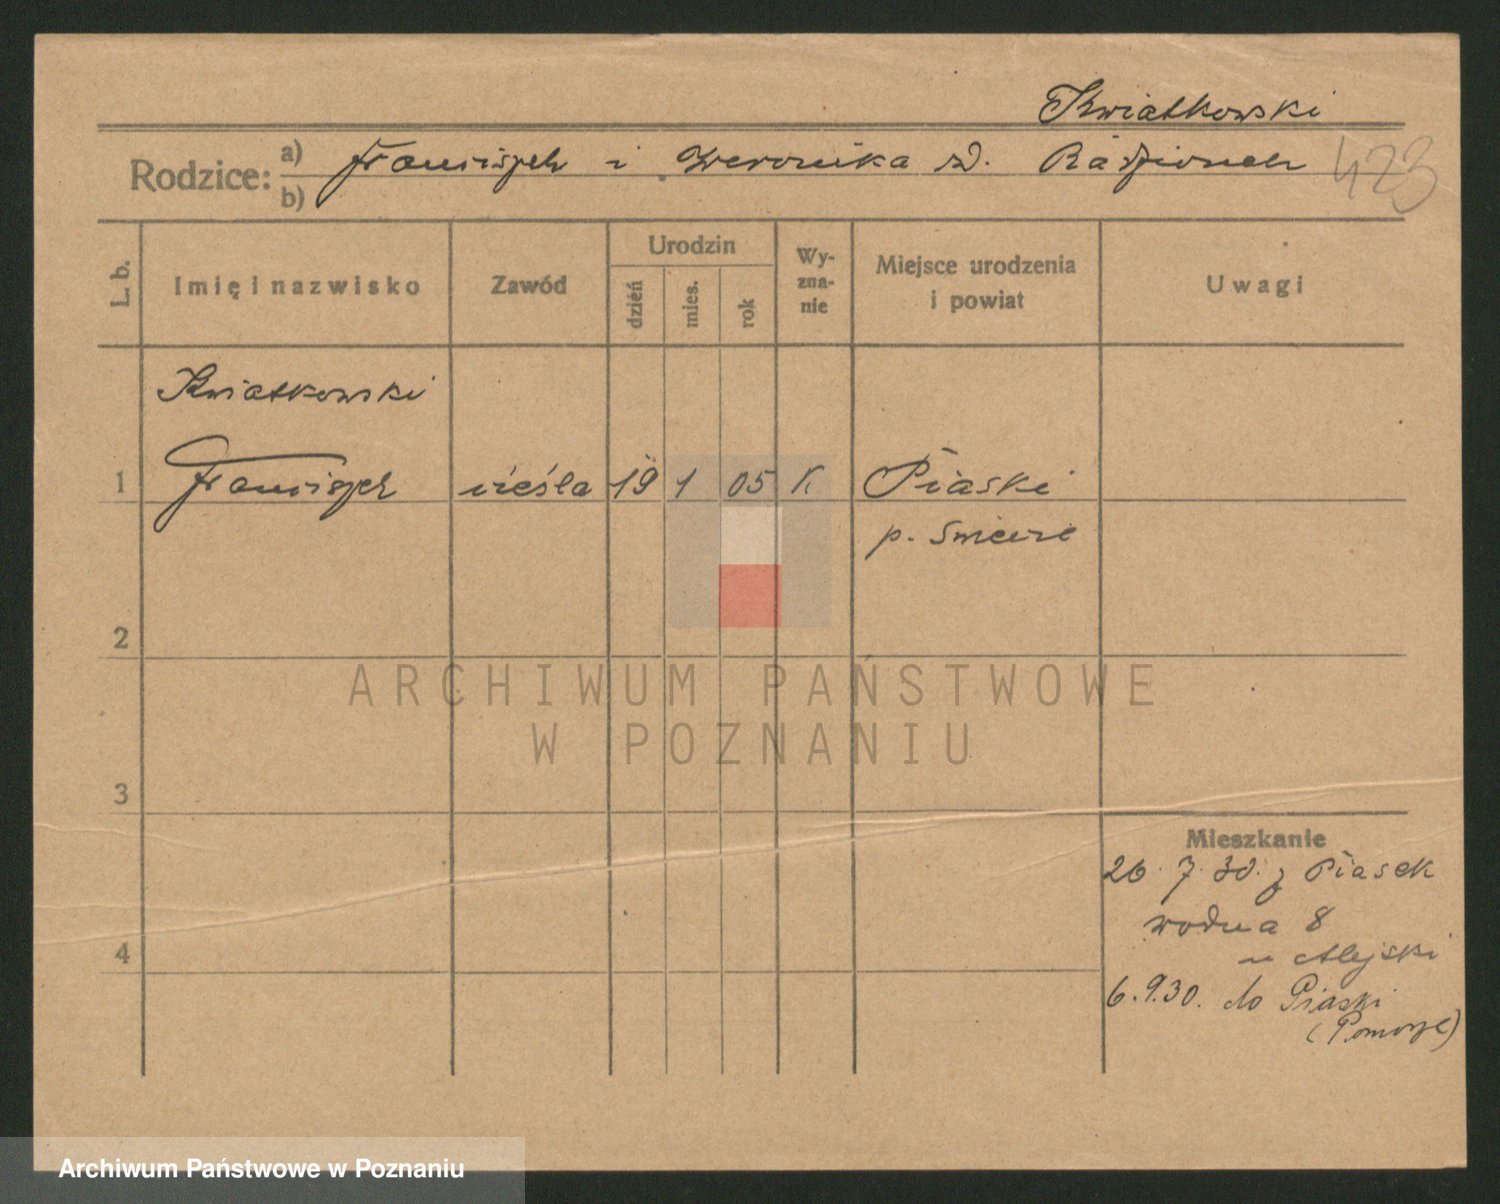 Kwiatkowski
Rodzice: a) Franciszek i Weronika rd. Radzionek 423
b)
L. b. Imię i nazwisko Zawód Urodzin dzień mies. rok Wyznanie Miejsce urodzenia i powiat Uwagi
Kwiatkowski
1 Franciszek cieśla 19 1 05 K Piaski
p. Świecie
2
ARCHIWUM PAŃSTWOWE
W POZNANIU
3
Mieszkanie
26. 7. 30. z Piasek
wodna 8
4
6.9.30. do Piaski
(Pomorze)
Archiwum Państwowe w Poznaniu